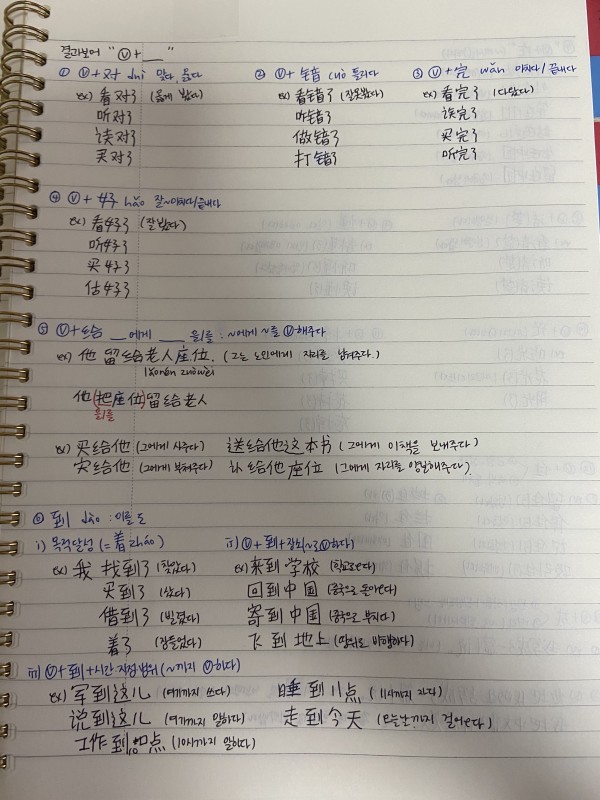 결과보어 "Ⓥ+__"
① Ⓥ+对 duì 맞다, 옳다
ex) 看对了 (옳게 봤다)
听对了
读对了
买对了
② Ⓥ+错 cuò 틀리다
ex) 看错了 (잘못봤다)
听错了
做错了
打错了
③ Ⓥ+完 wán 마치다/끝내다
ex) 看完了 (다봤다)
读完了
买完了
听完了
④ Ⓥ+好 hǎo 잘~마치다/끝내다
ex) 看好了 (잘봤다)
听好了
买好了
估好了
⑤ Ⓥ+给 __에게 __을/를 : ~에게 ~를 Ⓥ해주다
ex) 他 留给老人座位. (그는 노인에게 자리를 남겨주다.)
lǎorén zuòwèi
他(把座位)留给老人
을/를
ex) 买给他 (그에게 사주다) 送给他这本书 (그에게 이책을 보내주다)
寄给他 (그에게 부쳐주다) 让给他座位 (그에게 자리를 양보해주다)
⑥ 到 dào : 이를 도
i) 목적달성 (=着 zháo)
ex) 我 找到了 (찾았다)
买到了 (샀다)
借到了 (빌렸다)
着了 (잠들었다)
ii) Ⓥ+到+장소(~로 Ⓥ하다)
ex) 来到学校 (학교로 오다)
回到中国 (중국으로 돌아오다)
寄到中国 (중국으로 부치다)
飞到地上 (땅위로 비행하다)
iii) Ⓥ+到+시간·지점·범위 (~까지 Ⓥ하다)
ex) 写到这儿 (여기까지 쓰다) 睡到11点 (11시까지 자다)
说到这儿 (여기까지 말하다) 走到今天 (오늘날까지 걸어오다)
工作到10点 (10시까지 일하다)